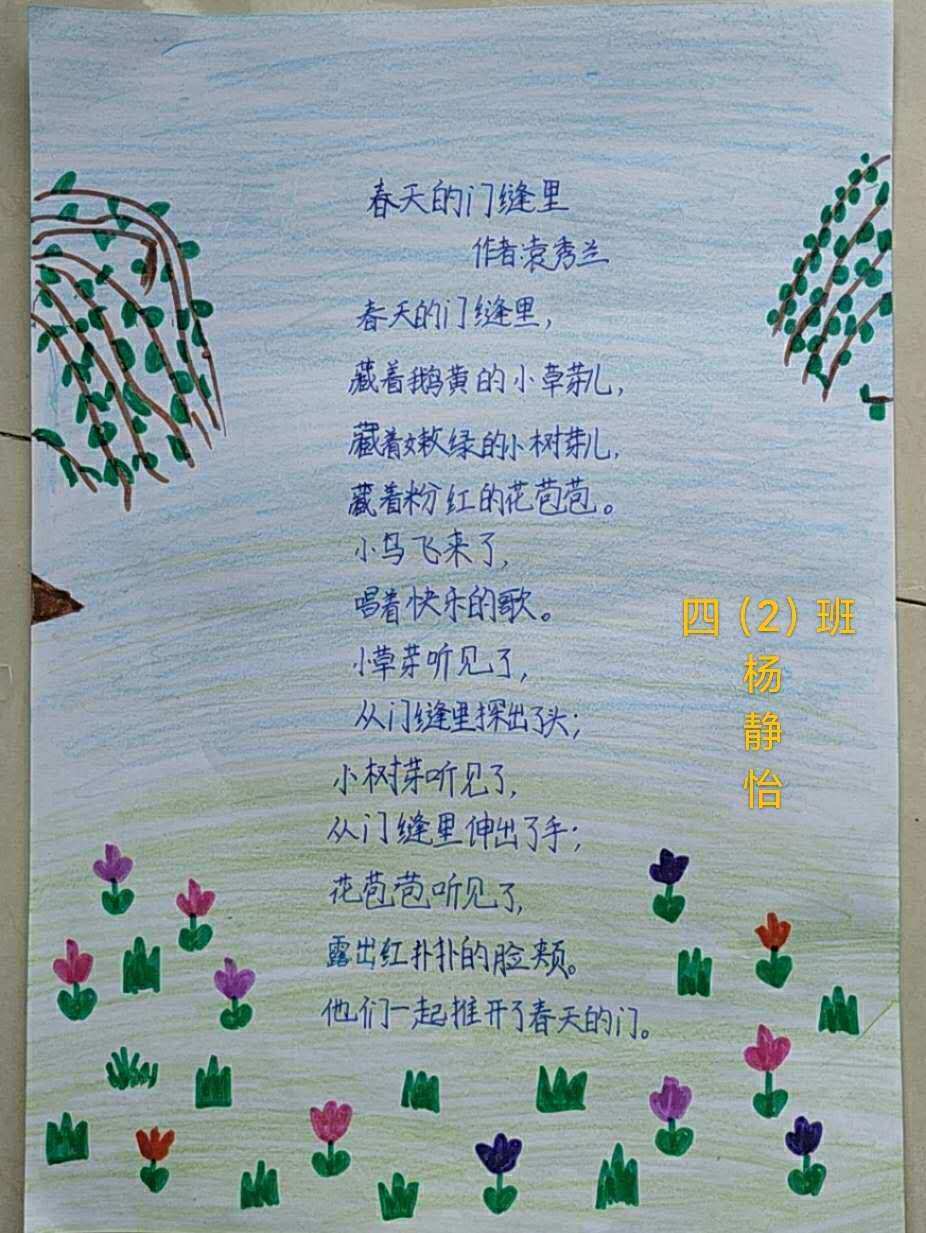 春天的门缝里
作者:袁秀兰
春天的门缝里,
藏着鹅黄的小草芽儿,
藏着嫩绿的小树芽儿,
藏着粉红的花苞苞。
小鸟飞来了,
唱着快乐的歌。
小草芽听见了,
从门缝里探出了头;
小树芽听见了,
从门缝里伸出了手;
花苞苞听见了,
露出红扑扑的脸颊。
他们一起推开了春天的门。
四（2）班
杨
静
怡